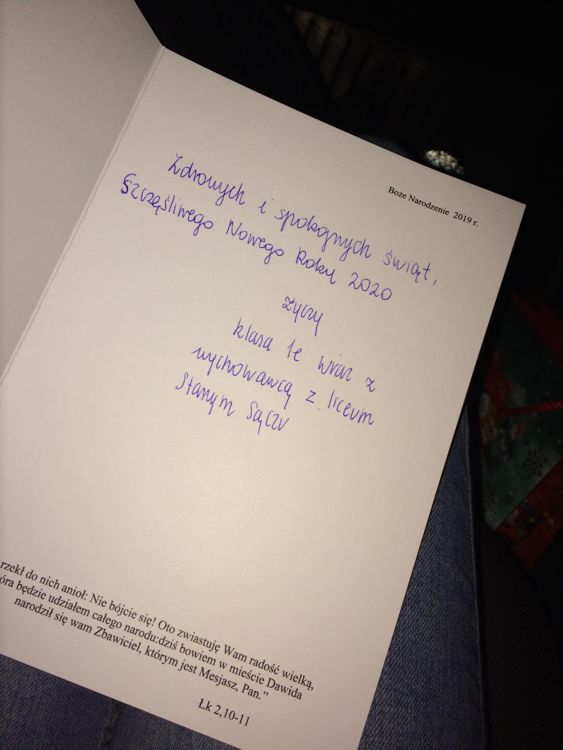 Boże Narodzenie 2019 r.
Zdrowych i spokojnych świąt,
Szczęśliwego Nowego Roku 2020
życzy
klasa 1e wraz z
wychowawcą z liceum
Starym Sączu
rzekł do nich anioł: Nie bójcie się! Oto zwiastuję Wam radość wielką,
óra będzie udziałem całego narodu:dziś bowiem w mieście Dawida
narodził się wam Zbawiciel, którym jest Mesjasz, Pan."
Łk 2,10-11